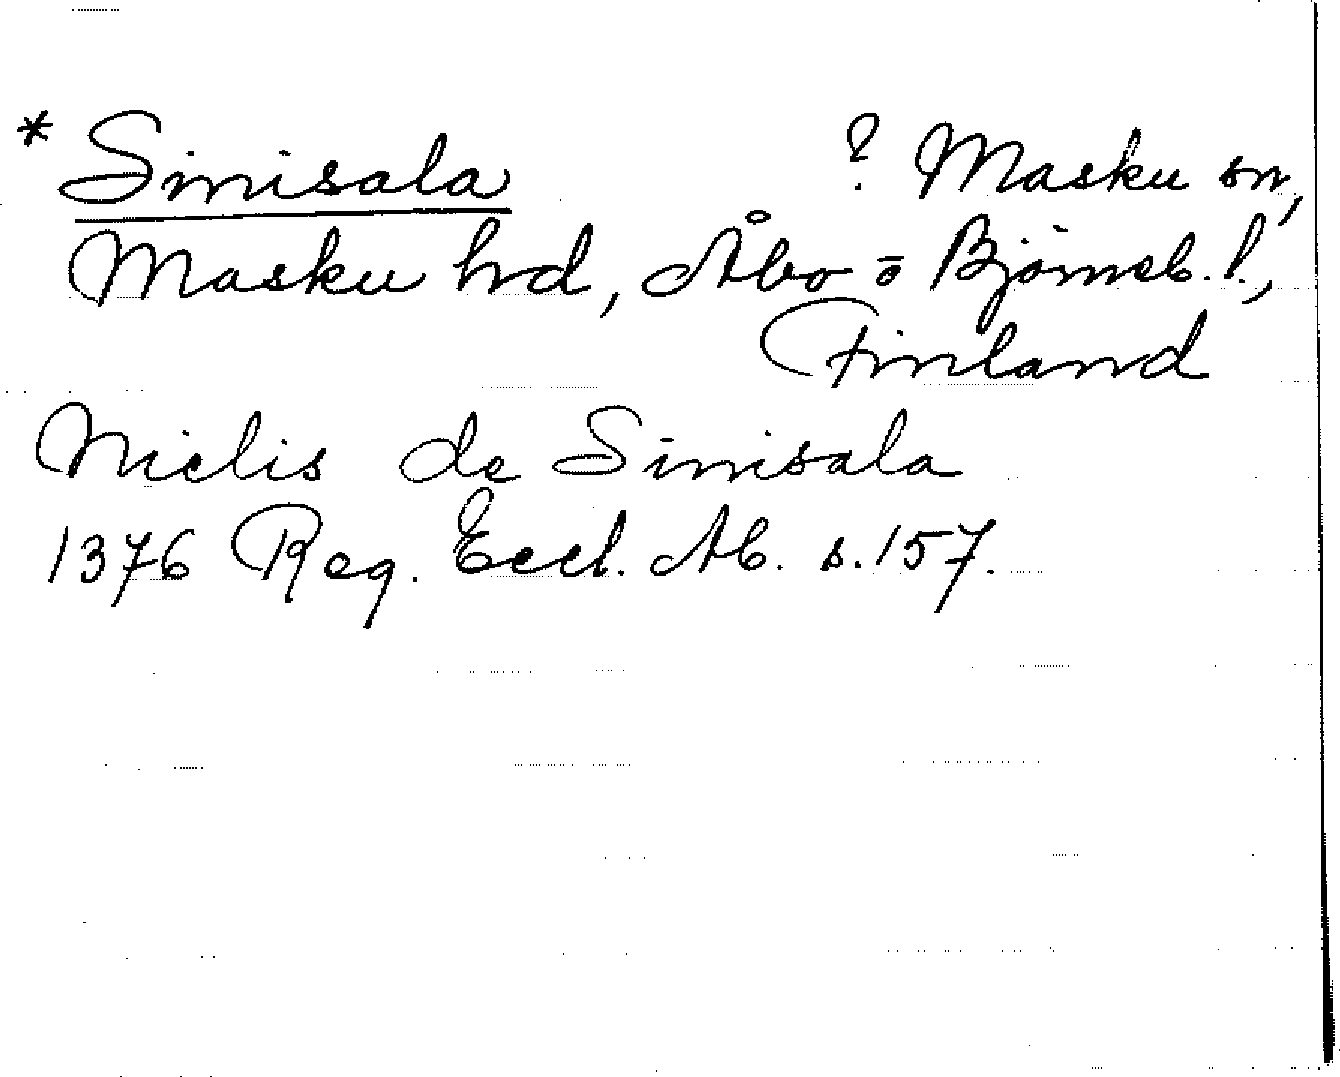 * Sinisala ? Masku sn,
Masku hd, Åbo o Björneb. l.,
Finland
Nielis de Sinisala
1376 Reg. Eccl. Ab. s. 157.